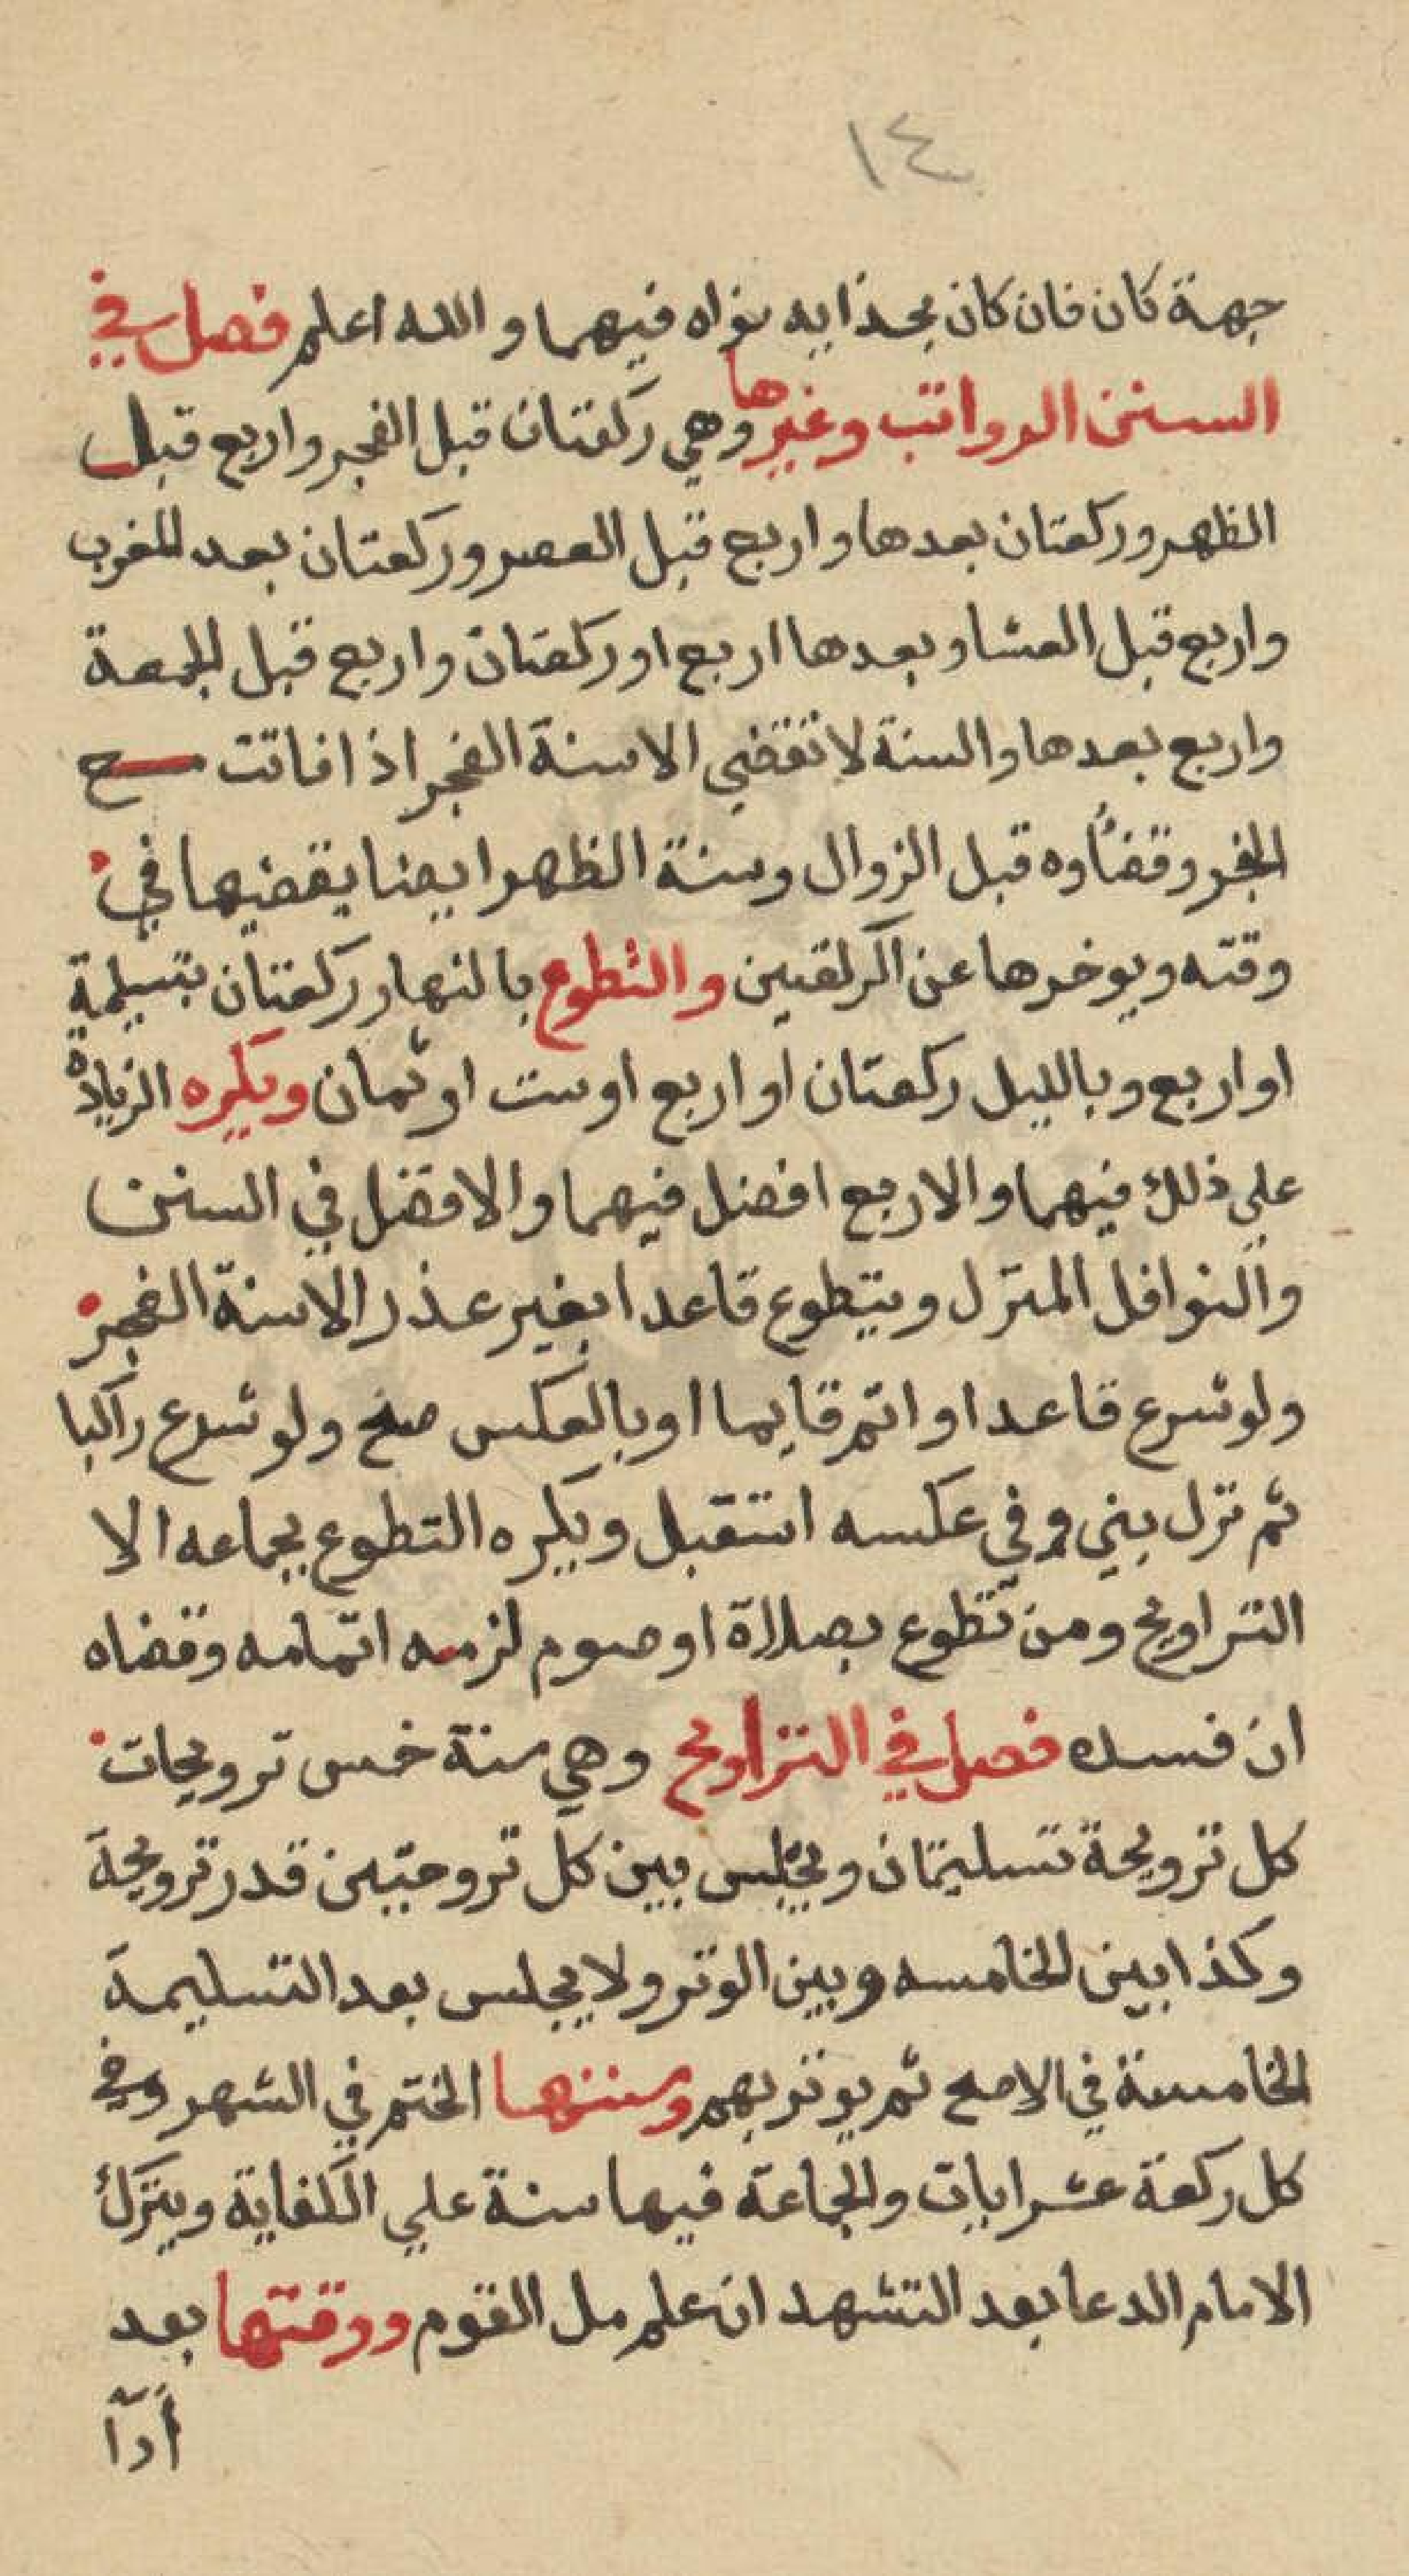 ١٤
جهة كان فان كان بحذايه نواه فيهما والله اعلم فصل في
السنن الرواتب وغيرها وهي ركعتان قبل الفجر واربع قبل
الظهر وركعتان بعدها واربع قبل العصر وركعتان بعد المغرب
واربع قبل العشا وبعدها اربع او ركعتان واربع قبل الجمعة
واربع بعدها والسنة لا تقضي الا سنة الفجر اذا فاتت مع
الفجر وقضأوه قبل الزوال وسنة الظهر ايضا يقضيها في
وقته ويوخرها عن الركعتين والتطوع بالنهار ركعتان بتسليمة
او اربع وبالليل ركعتان او اربع او ست او ثمان ويكره الزيادة
علي ذلك فيهما والاربع افضل فيهما والافضل في السنن
والنوافل المنزل ويتطوع قاعدا بغير عذر الا سنة الفجر
ولو شرع قاعدا او اتم قايما او بالعكس صح ولو شرع راكبا
ثم نزل بني وفي عكسه استقبل ويكره التطوع بجماعه الا
التراويح ومن تطوع بصلاة او صوم لزمه اتمامه وقضاه
ان فسده فصل في التراويح وهي سنة خمس ترويحات
كل ترويحة تسليمتان ويجلس بين كل تروحتين قدر ترويحة
وكذا بين الخامسه وبين الوتر ولا يجلس بعد التسليمة
الخامسة في الاصح ثم يوتر بهم وسننها الختم في الشهر وفي
كل ركعة عشر ايات والجماعة فيها سنة علي الكفاية ويترك
الامام الدعا بعد التشهد ان علم مل القوم ووقتها بعد
أدآ